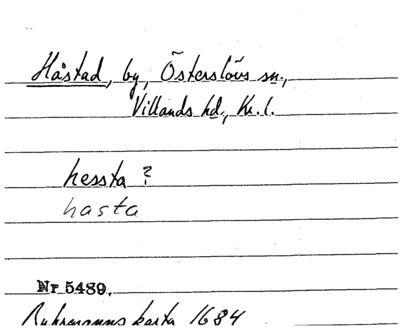 Håstad, by, Österslövs sn.,
Villands hd., Kr. l.
hessta ?
hasta
Nr 5489.
Buhrmanns karta 1684